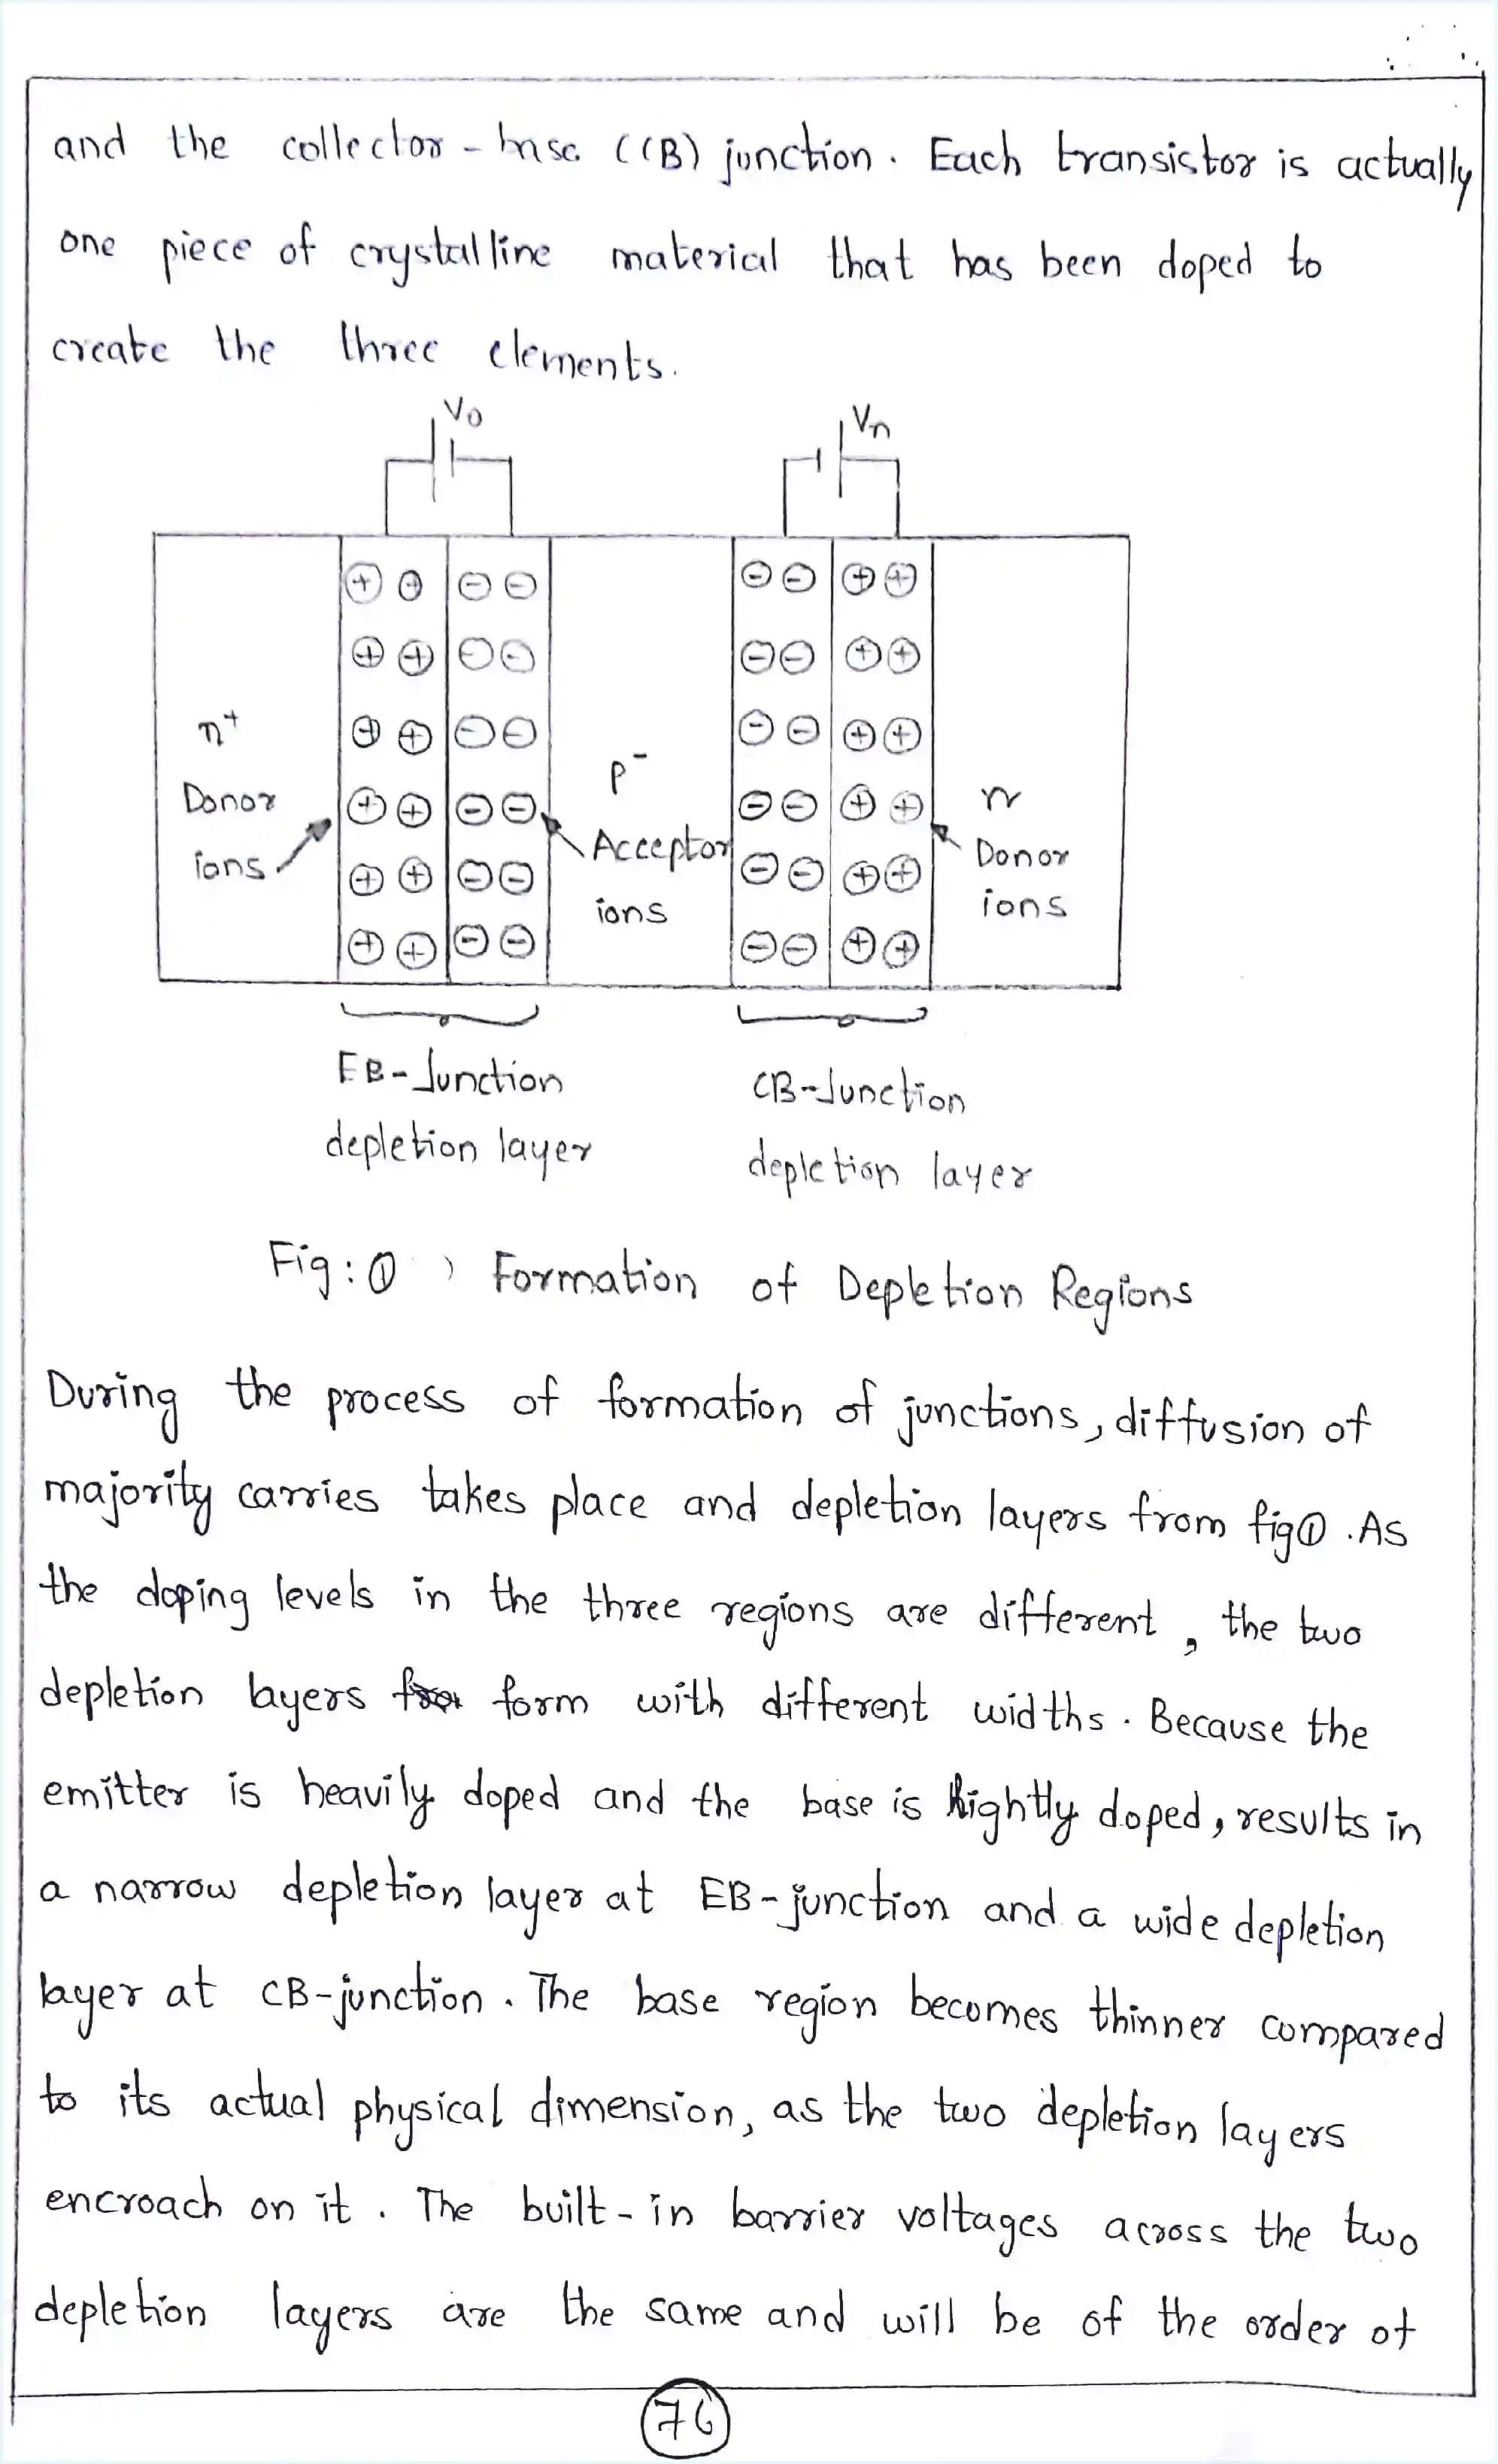 and the collector - base (CB) junction. Each transistor is actually
one piece of crystalline material that has been doped to
create the three elements.
V0 Vn
n+
Donor
ions
p-
Acceptor
ions
n
Donor
ions
EB-Junction
depletion layer
CB-Junction
depletion layer
Fig: ① Formation of Depletion Regions
During the process of formation of junctions, diffusion of
majority carries takes place and depletion layers from fig① . As
the doping levels in the three regions are different, the two
depletion layers form with different widths. Because the
emitter is heavily doped and the base is lightly doped, results in
a narrow depletion layer at EB-junction and a wide depletion
layer at CB-junction. The base region becomes thinner compared
to its actual physical dimension, as the two depletion layers
encroach on it. The built-in barrier voltages across the two
depletion layers are the same and will be of the order of
76